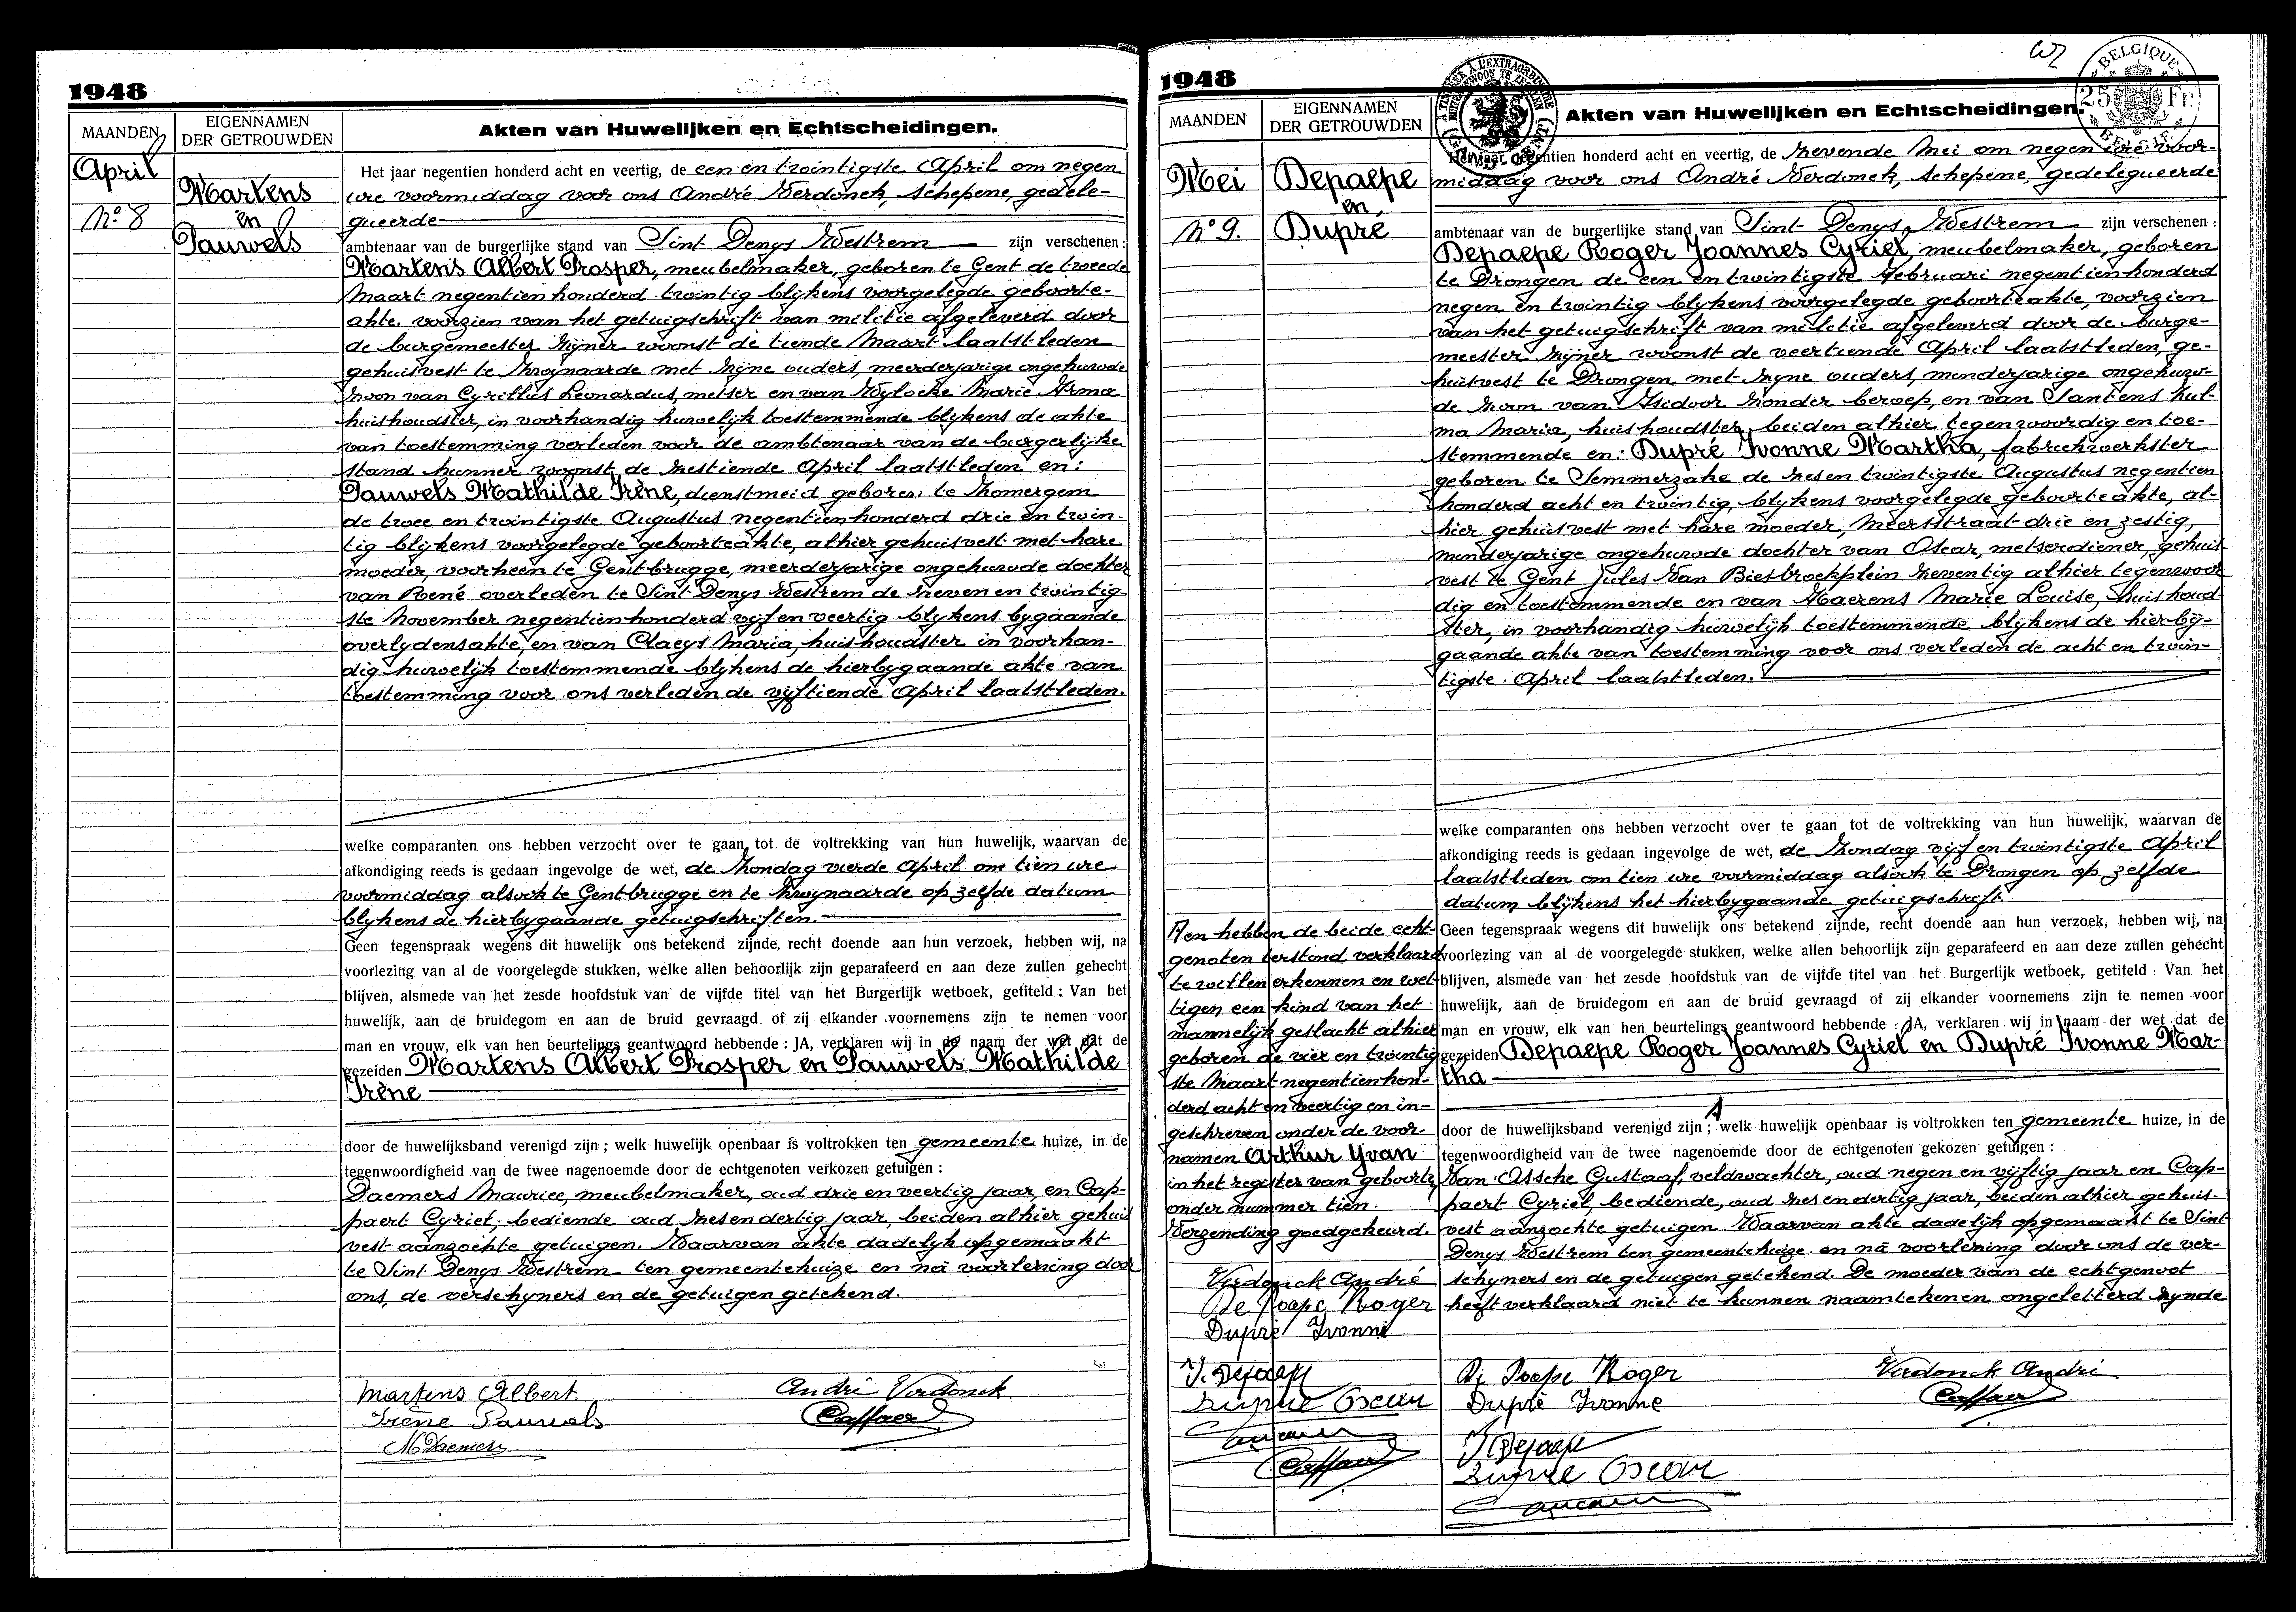 1948
MAANDEN
EIGENNAMEN
DER GETROUWDEN
Akten van Huwelijken en Echtscheidingen.
April
Nº 8
Martens
en
Pauwels
Het jaar negentien honderd acht en veertig, de een en twintigste April om negen
ure voormiddag voor ons André Verdonck, schepene, gedele-
gueerde
ambtenaar van de burgerlijke stand van Sint Denys Westrem zijn verschenen:
Martens Albert Prosper, meubelmaker, geboren te Gent de tweede
Maart negentienhonderd twintig blykens voorgelegde geboorte-
akte. voorzien van het getuigschrift van militie afgeleverd door
de burgemeester zyner woonst de tiende Maart laatstleden
gehuisvest te Zwynaarde met zyne ouders, meerderjarige ongehuwde
zoon van Cyrillus Leonardus, metser en van Wylocke Marie Irma
huishoudster, in voorhandig huwelyk toestemmende blykens de akte
van toestemming verleden voor de ambtenaar van de burgerlyke
stand hunner woonst de zestiende April laatstleden en:
Pauwels Mathilde Irène, dienstmeid geboren te Zomergem
de twee en twintigste Augustus negentienhonderd drie en twin-
tig blykens voorgelegde geboorteakte, alhier gehuisvest met hare
moeder, voorheen te Gentbrugge, meerderjarige ongehuwde dochter
van René overleden te Sint Denys Westrem de zeven en twintig-
ste November negentienhonderd vyf en veertig blykens bygaande
overlydensakte, en van Claeys Maria, huishoudster in voorhan-
dig huwelyk toestemmende blykens de hierbygaande akte van
toestemming voor ons verleden de vyftiende April laatstleden.
welke comparanten ons hebben verzocht over te gaan tot de voltrekking van hun huwelijk, waarvan de
afkondiging reeds is gedaan ingevolge de wet, de Zondag vierde April om tien ure
voormiddag alsook te Gentbrugge en te Zwynaarde op zelfde datum
blykens de hierbygaande getuigschriften.
Geen tegenspraak wegens dit huwelijk ons betekend zijnde, recht doende aan hun verzoek, hebben wij, na
voorlezing van al de voorgelegde stukken, welke allen behoorlijk zijn geparafeerd en aan deze zullen gehecht
blijven, alsmede van het zesde hoofdstuk van de vijfde titel van het Burgerlijk wetboek, getiteld : Van het
huwelijk, aan de bruidegom en aan de bruid gevraagd of zij elkander voornemens zijn te nemen voor
man en vrouw, elk van hen beurtelings geantwoord hebbende : JA, verklaren wij in de naam der wet dat de
gezeiden Martens Albert Prosper en Pauwels Mathilde
Irène
door de huwelijksband verenigd zijn ; welk huwelijk openbaar is voltrokken ten gemeente huize, in de
tegenwoordigheid van de twee nagenoemde door de echtgenoten verkozen getuigen :
Daemers Maurice, meubelmaker, oud drie en veertig jaar, en Cap-
paert Cyriel, bediende oud zesendertig jaar, beiden alhier gehuis
vest aanzochte getuigen. Waarvan akte dadelyk opgemaakt
te Sint Denys Westrem ten gemeentehuize en na voorlezing door
ons, de verschyners en de getuigen getekend.
Martens Albert
André Verdonck
Irène Pauwels
Cappaert
M Daemers
1948
MAANDEN
EIGENNAMEN
DER GETROUWDEN
Akten van Huwelijken en Echtscheidingen.
BELGIQUE
25 Fr.
Mei
Nº 9.
Depaepe
en
Dupré
Het jaar negentien honderd acht en veertig, de zevende Mei om negen ure voor-
middag voor ons André Verdonck, schepene, gedelegueerde
ambtenaar van de burgerlijke stand van Sint Denys Westrem zijn verschenen :
Depaepe Roger Joannes Cyriel, meubelmaker, geboren
te Drongen de een en twintigste Februari negentienhonderd
negen en twintig blykens voorgelegde geboorteakte, voorzien
van het getuigschrift van militie afgeleverd door de burge-
meester zyner woonst de veertiende April laatstleden, ge-
huisvest te Drongen met zyne ouders, minderjarige ongehuw-
de zoon van Isidoor zonder beroep, en van Santens Zul-
ma Maria, huishoudster beiden alhier tegenwoordig en toe-
stemmende en: Dupré Ivonne Martha, fabriekwerkster
geboren te Semmerzake de zesentwintigste Augustus negentien
honderd acht en twintig, blykens voorgelegde geboorteakte, al-
hier gehuisvest met hare moeder, Meersstraat drie en zestig,
minderjarige ongehuwde dochter van Oscar, metserdiener, gehuis-
vest te Gent Jules Van Biesbroekplein zeventig alhier tegenwoor
dig en toestemmende en van Haerens Marie Louise, huishoud
ster, in voorhandig huwelyk toestemmende blykens de hierby-
gaande akte van toestemming voor ons verleden de acht en twin-
tigste April laatstleden.
welke comparanten ons hebben verzocht over te gaan tot de voltrekking van hun huwelijk, waarvan de
afkondiging reeds is gedaan ingevolge de wet, de Zondag vyf en twintigste April
laatstleden om tien ure voormiddag alsook te Drongen op zelfde
datum blykens het hierbygaande getuigschrift.
Geen tegenspraak wegens dit huwelijk ons betekend zijnde, recht doende aan hun verzoek, hebben wij, na
voorlezing van al de voorgelegde stukken, welke allen behoorlijk zijn geparafeerd en aan deze zullen gehecht
blijven, alsmede van het zesde hoofdstuk van de vijfde titel van het Burgerlijk wetboek, getiteld : Van het
huwelijk, aan de bruidegom en aan de bruid gevraagd of zij elkander voornemens zijn te nemen voor
man en vrouw, elk van hen beurtelings geantwoord hebbende : JA, verklaren wij in naam der wet dat de
gezeiden Depaepe Roger Joannes Cyriel en Dupré Ivonne Mar-
tha
door de huwelijksband verenigd zijn ; welk huwelijk openbaar is voltrokken ten gemeente huize, in de
tegenwoordigheid van de twee nagenoemde door de echtgenoten gekozen getuigen :
Van Assche Gustaaf, veldwachter, oud negen en vyftig jaar en Cap-
paert Cyriel, bediende, oud zesendertig jaar, beiden alhier gehuis-
vest aanzochte getuigen. Waarvan akte dadelyk opgemaakt te Sint
Denys Westrem ten gemeentehuize en na voorlezing door ons de ver-
schyners en de getuigen getekend. De moeder van de echtgenoot
heeft verklaard niet te kunnen naamtekenen ongeletterd zynde
en hebben de beide echt-
genoten terstond verklaard
te willen erkennen en wet-
tigen een kind van het
mannelyk geslacht alhier
geboren de vier en twintig
ste Maart negentienhon-
derd acht en veertig en in-
geschreven onder de voor-
namen Arthur Yvan
in het register van geboorte
onder nummer tien.
Verzending goedgekeurd.
Verdonck André
De Paepe Roger
Dupré Ivonne
I. Depaepe
Dupré Oscar
Cappaert
De Paepe Roger
Verdonck André
Dupré Ivonne
Cappaert
I Depaepe
Dupré Oscar